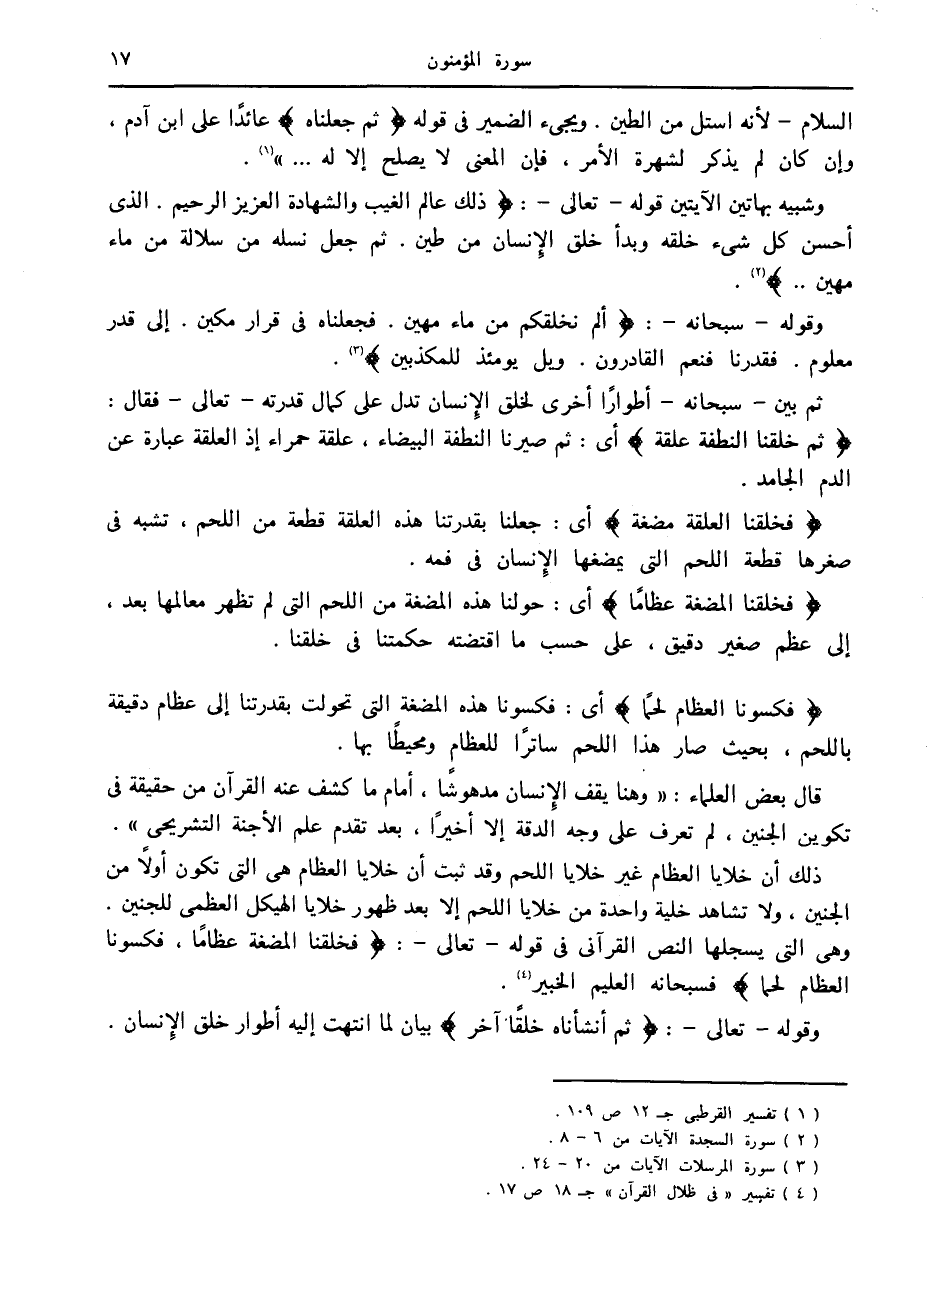 سورة المؤمنون ١٧
السلام – لأنه استل من الطين . ويجىء الضمير فى قوله ﴿ ثم جعلناه ﴾ عائدًا على ابن آدم ،
وإن كان لم يذكر لشهرة الأمر ، فإن المعنى لا يصلح إلا له ... »(١) .
وشبيه بهاتين الآيتين قوله – تعالى – : ﴿ ذلك عالم الغيب والشهادة العزيز الرحيم . الذى
أحسن كل شىء خلقه وبدأ خلق الإنسان من طين . ثم جعل نسله من سلالة من ماء
مهين .. ﴾(٢) .
وقوله – سبحانه – : ﴿ ألم نخلقكم من ماء مهين . فجعلناه فى قرار مكين . إلى قدر
معلوم . فقدرنا فنعم القادرون . ويل يومئذ للمكذبين ﴾(٣) .
ثم بين – سبحانه – أطوارًا أخرى لخلق الإنسان تدل على كمال قدرته – تعالى – فقال :
﴿ ثم خلقنا النطفة علقة ﴾ أى : ثم صيرنا النطفة البيضاء ، علقة حمراء إذ العلقة عبارة عن
الدم الجامد .
﴿ فخلقنا العلقة مضغة ﴾ أى : جعلنا بقدرتنا هذه العلقة قطعة من اللحم ، تشبه فى
صغرها قطعة اللحم التى يمضغها الإنسان فى فمه .
﴿ فخلقنا المضغة عظامًا ﴾ أى : حولنا هذه المضغة من اللحم التى لم تظهر معالمها بعد ،
إلى عظم صغير دقيق ، على حسب ما اقتضته حكمتنا فى خلقنا .
﴿ فكسونا العظام لحمًا ﴾ أى : فكسونا هذه المضغة التى تحولت بقدرتنا إلى عظام دقيقة
باللحم ، بحيث صار هذا اللحم ساترًا للعظام ومحيطًا بها .
قال بعض العلماء : « وهنا يقف الإنسان مدهوشًا ، أمام ما كشف عنه القرآن من حقيقة فى
تكوين الجنين ، لم تعرف على وجه الدقة إلا أخيرًا ، بعد تقدم علم الأجنة التشريحى » .
ذلك أن خلايا العظام غير خلايا اللحم وقد ثبت أن خلايا العظام هى التى تكون أولًا من
الجنين ، ولا تشاهد خلية واحدة من خلايا اللحم إلا بعد ظهور خلايا الهيكل العظمى للجنين .
وهى التى يسجلها النص القرآنى فى قوله – تعالى – : ﴿ فخلقنا المضغة عظامًا ، فكسونا
العظام لحما ﴾ فسبحانه العليم الخبير(٤) .
وقوله – تعالى – : ﴿ ثم أنشأناه خلقًا آخر ﴾ بيان لما انتهت إليه أطوار خلق الإنسان .
( ١ ) تفسير القرطبى جـ ١٢ ص ١٠٩ .
( ٢ ) سورة السجدة الآيات من ٦ – ٨ .
( ٣ ) سورة المرسلات الآيات من ٢٠ – ٢٤ .
( ٤ ) تفسير « فى ظلال القرآن » جـ ١٨ ص ١٧ .